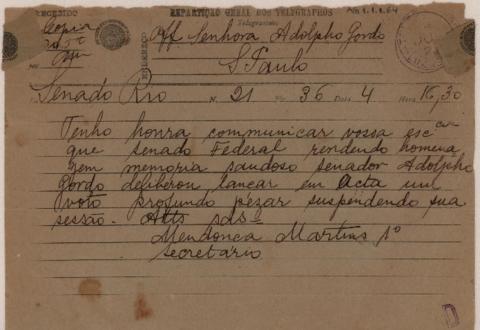 RECEBIDO
REPARTIÇÃO GERAL DOS TELEGRAPHOS
Telegramma
Off Senhora Adolpho Gordo
ENDEREÇO
S Paulo
Senado Rio N. 21 36 Data 4 Hora 16,30
Tenho honra communicar vossa exc cia
que senado Federal rendendo homena
gem memoria saudoso senador Adolpho
Gordo deliberou lancar em Acta um
voto profundo pezar suspendendo sua
sessão - Atts sds -
Mendonca Martins 1º
secretario